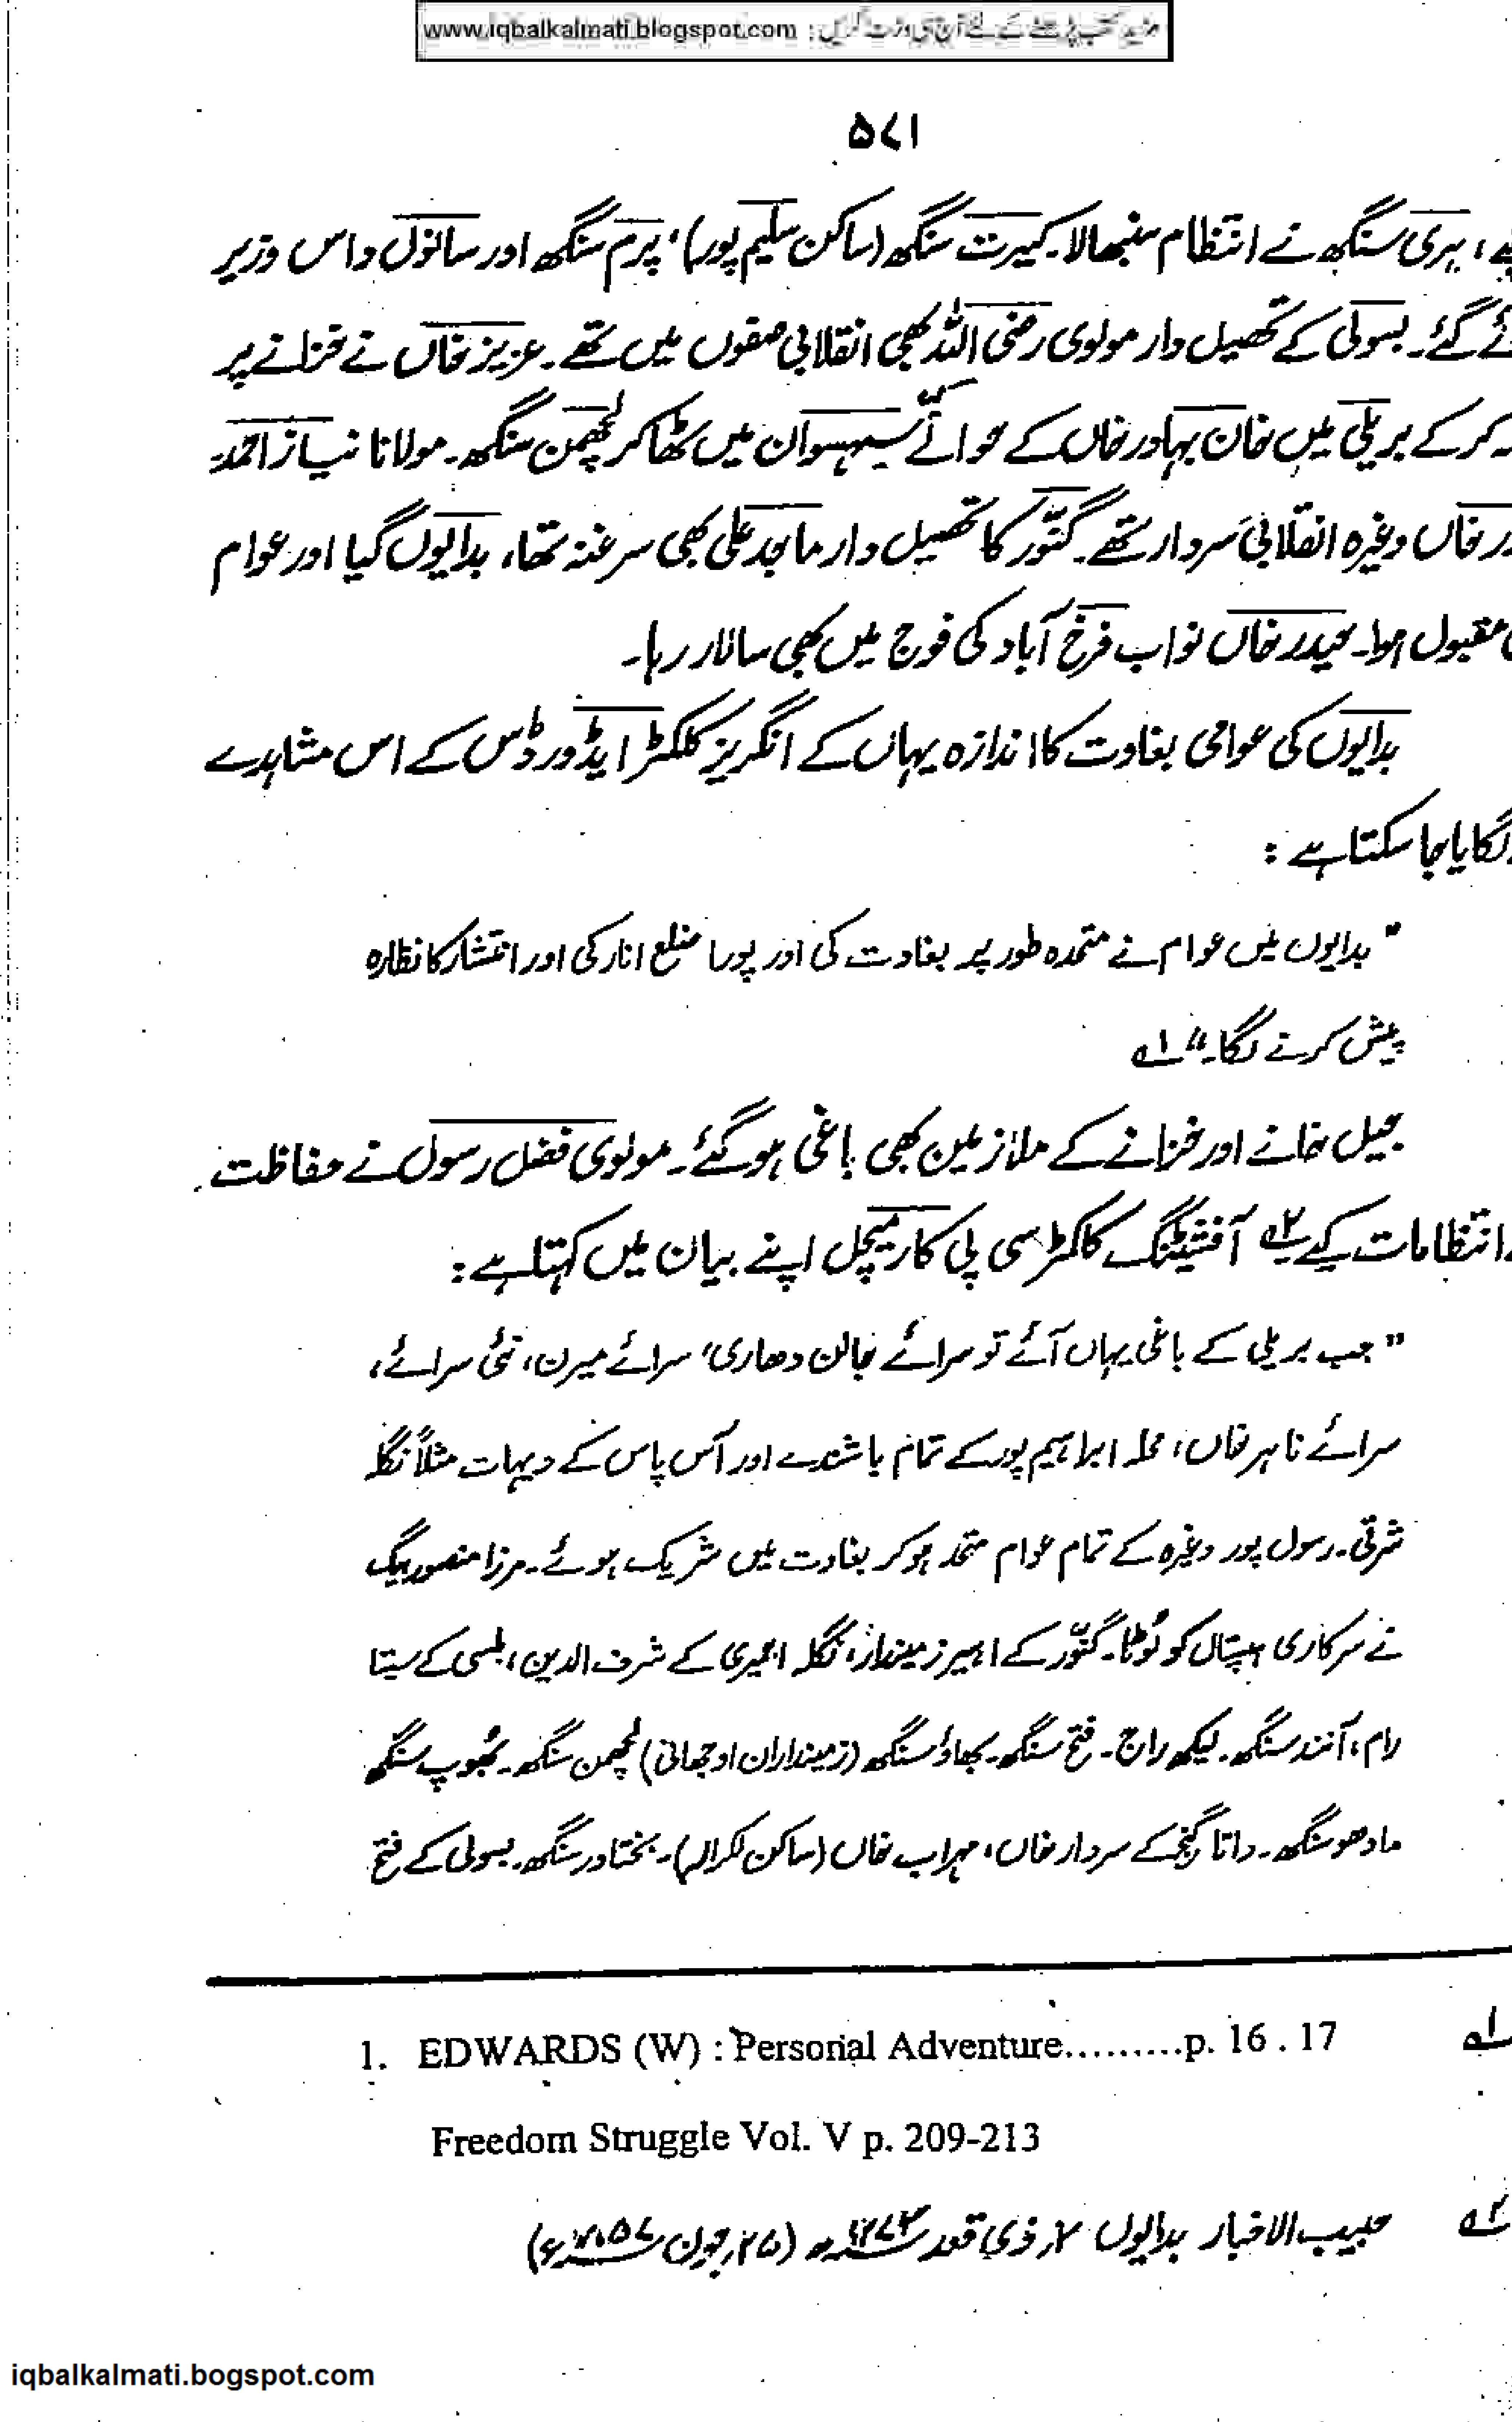 مزید کتب پڑھنے کے لئے آج ہی وزٹ کریں : www.iqbalkalmati.blogspot.com
۵۷۱
ہری سنگھ نے انتظام سنبھالا۔ کیرت سنگھ (ساکن سلیم پور)، پرم سنگھ اور سانول داس وزیر
گئے۔ بسولی کے تحصیل دار مولوی رضی اللہ بھی انقلابی صفوں میں تھے۔ عزیز خاں نے خزانے پر
کر کے بریلی میں خان بہادر خاں کے حوالے۔ سہسوان میں ٹھاکر لچھمن سنگھ۔ مولانا نیاز احمد۔
خاں وغیرہ انقلابی سردار تھے۔ گنّور کا تحصیل دار ماجد علی بھی سرغنہ تھا، بدایوں گیا اور عوام
مقبول ہوا۔ حیدر خاں نواب فرخ آباد کی فوج میں بھی سالار رہا۔
بدایوں کی عوامی بغاوت کا اندازہ یہاں کے انگریز کلکٹر ایڈورڈس کے اس مشاہدے
لگایا جا سکتا ہے :
"بدایوں میں عوام نے متحدہ طور پر بغاوت کی اور پورا ضلع انارکی اور انتشار کا نظارہ
پیش کرنے لگا۔" ۱ے
جیل خانے اور خزانے کے ملازمین بھی باغی ہو گئے۔ مولوی فضل رسول نے حفاظت
انتظامات کیے ۲ے آفشیٹنگ کلکٹر سی پی کارمیچل اپنے بیان میں کہتا ہے :
"جب بریلی کے باغی یہاں آئے تو سرائے جالن دھاری، سرائے میرن، نئی سرائے،
سرائے ناہر خاں، محلہ ابراہیم پور کے تمام باشندے اور آس پاس کے دیہات مثلاً نگلہ
شرقی۔ رسول پور وغیرہ کے تمام عوام متحد ہو کر بغاوت میں شریک ہوئے۔ مرزا منصور بیگ
نے سرکاری ہسپتال کو لُوٹا۔ گنّور کے امیر زمیندار، نگلہ اجمیری کے شرف الدین، بلسی کے سیتا
رام، آنند سنگھ۔ لیکھ راج۔ فتح سنگھ۔ بھاؤ سنگھ (زمینداران اوجھانی) لچھمن سنگھ۔ بھُوپ سنگھ
مادھو سنگھ۔ داتا گنج کے سردار خاں، مہراب خاں (ساکن ککرالہ)۔ بختاور سنگھ۔ بسولی کے فتح
۱ے 1. EDWARDS (W) : Personal Adventure.........p. 16 . 17
Freedom Struggle Vol. V p. 209-213
۲ے حبیب الاخبار بدایوں ۲؍ ذی قعد ۱۲۷۳ھ (۲۵؍ جون ۱۸۵۷ء)
iqbalkalmati.bogspot.com